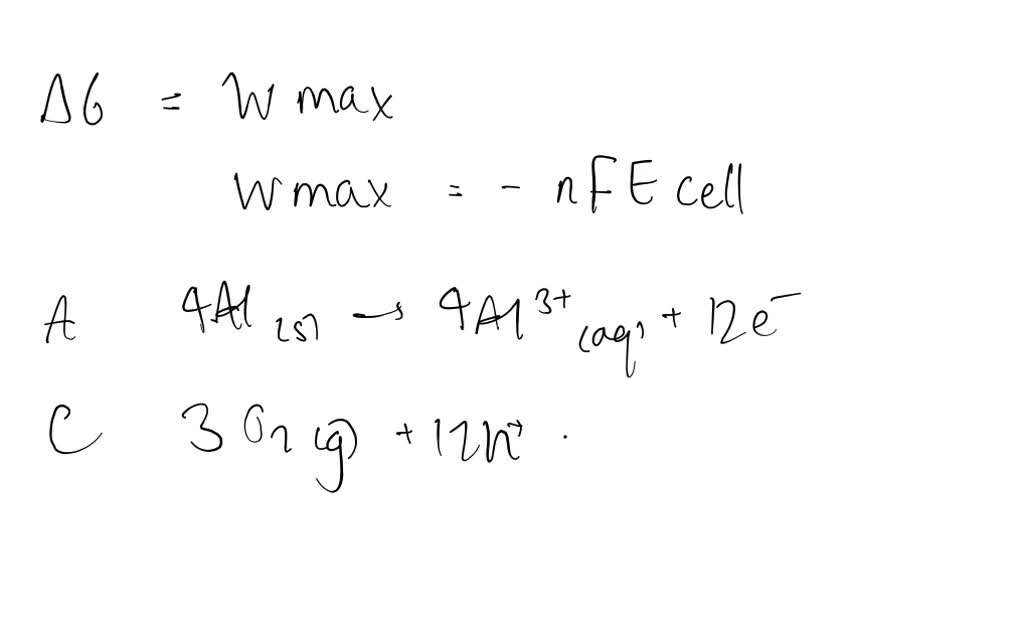 ΔG = Wmax
Wmax = - nFE cell
A 4Al (s) → 4Al 3+ (aq) + 12e⁻
C 3 O2 (g) + 12H+ .